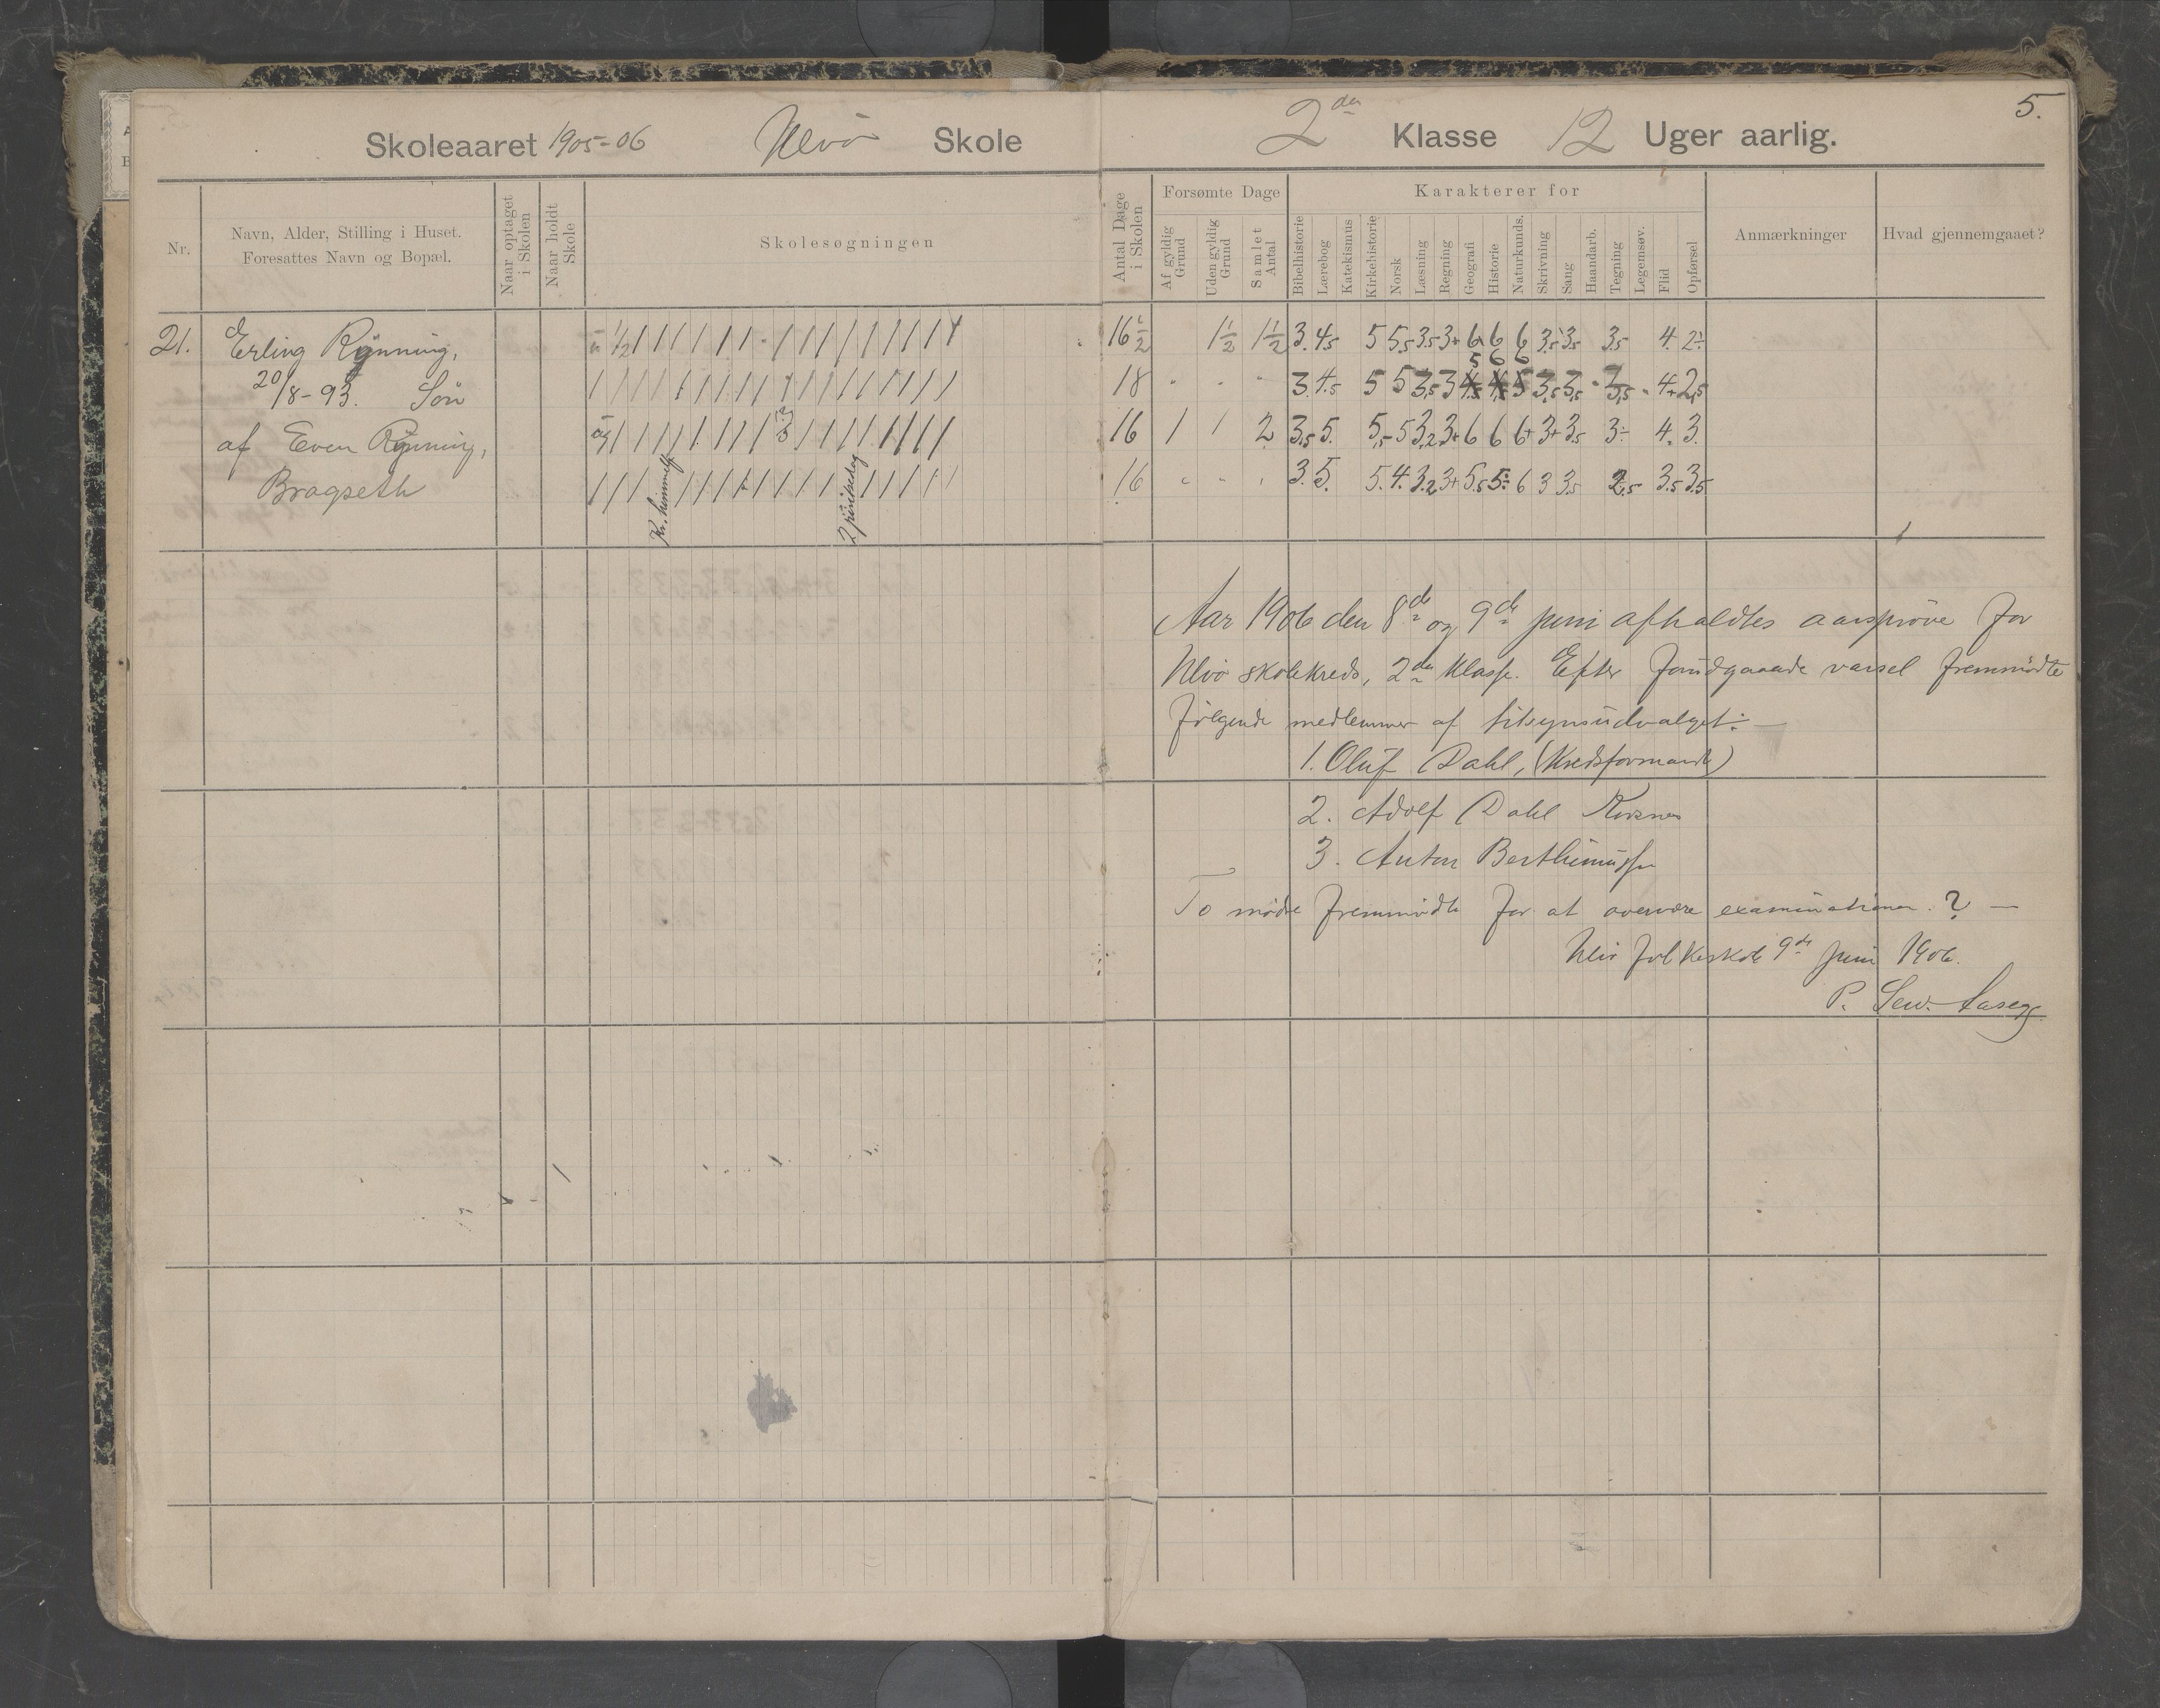 5.
Skoleaaret 1905-06 Ulvø Skole 2den Klasse 12 Uger aarlig.
Nr.
Navn, Alder, Stilling i Huset.
Foresattes Navn og Bopæl.
Naar optaget i Skolen
Naar holdt Skole
Skolesøgningen
Antal Dage i Skolen
Forsømte Dage
Af gyldig Grund
Uden gyldig Grund
Samlet Antal
Karakterer for
Bibelhistorie
Lærebog
Katekismus
Kirkehistorie
Norsk
Læsning
Regning
Geografi
Historie
Naturkunds.
Skrivning
Sang
Haandarb.
Tegning
Legemsøv.
Flid
Opførsel
Anmærkninger
Hvad gjennemgaaet?
21. Erling Rønning, 16 1/2 1 1/2 1 1/2 3. 4,5 5 5,5 3,5 3+ 6 6 6 3,5 3,5 3,5 4. 2÷
5 6 6
20/8-93. Søn 18 " " " 3. 4,5 5 5 3,5 3 3,5 3,5 3,5 4+ 2,5
af Even Rønning, 16 1 1 2 3,5 5. 5,- 5 3,2 3+ 6 6 6+ 3+ 3,5 3÷ 4. 3.
Bragseth 16 3. 5. 5. 4. 3,2 3+ 5,5 5÷ 6 3 3,5 2,5 3,5 3,5
Kr. himmelf
2 pinsedag
Aar 1906 den 8de og 9de juni afholdtes aarsprøve for
Ulvø skolekreds, 2den klasse. Efter forudgaaende varsel fremmødte
følgende medlemmer af tilsynsudvalget:
1. Oluf Dahl, (Kredsformand)
2. Adolf Dahl
3. Anton
To mødre fremmødte for at overvære examinationen. ? —
Ulvø folkeskole 9de juni 1906.
P.